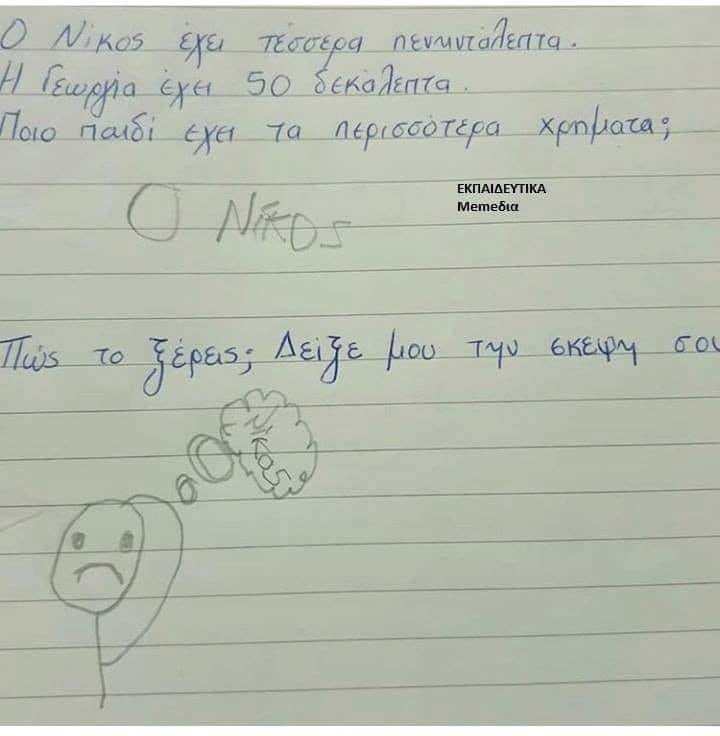 Ο Νίκος έχει τέσσερα πενηντάλεπτα.
Η Γεωργία έχει 50 δεκάλεπτα.
Ποιο παιδί έχει τα περισσότερα χρήματα;
ΕΚΠΑΙΔΕΥΤΙΚΑ
Memeδια
Ο Νίκος
Πώς το ξέρεις; Δείξε μου την σκέψη σου
Νίκος